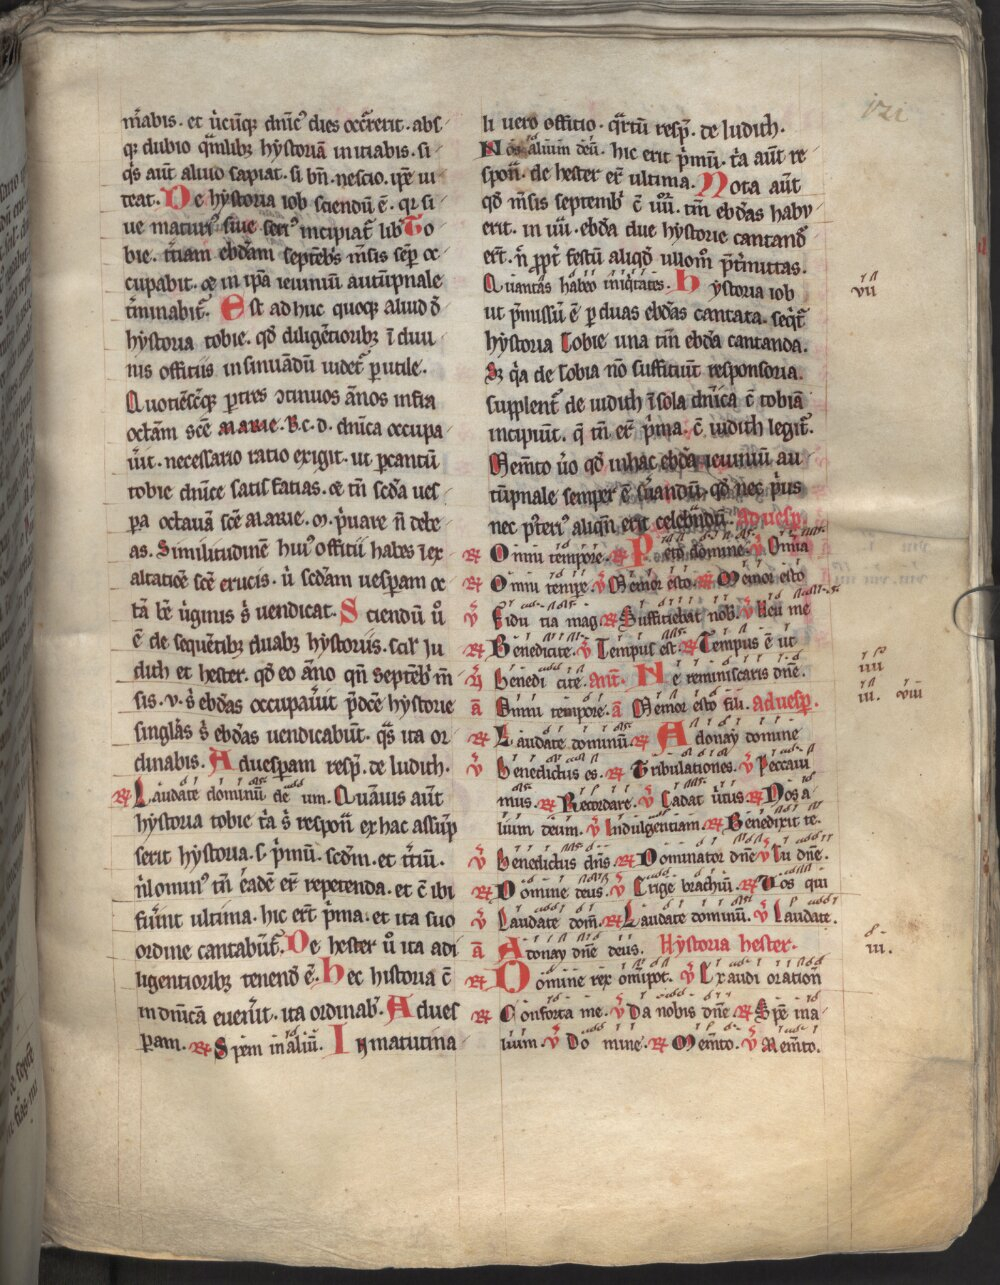 mabis. et ućūq; dnić dies occrerit. abs
q; dubio qmlib; hystoriā initiabis. si
q̇s aut̄ aliud sapiat. si bn̄. nescio. ip̄e ui
teat. De hystoria iob sciendū ē. qr si
ue matur᷒ siue seri᷒ incipiat̄ lib̄ To
bie. t̄tiam ebdām septēbs m̄sis sēp oc
cupabit. ce in ip̄a ieiuniū autūpnale
t̄minabit̄. Est ad huc quoq; aliud ō
hystoria tobie. qd̄ diligētiorib; ī diui
nis offitiis insinuādū uidet̄ p utile.
Quotiēsćq; p tres ɔtinuos ānos infra
octām scē MARIE. B.c.d. dnīca occupa
uīt. necessario ratio exigit. ut p cantū
tobie dnīce satis fatias. ce tn̄ scda ues
pa octauā scē MARIE. m. p̄uare n̄ debe
as. Similitudinē hui᷒ offitii habes ī ex
altatiōe scē crucis. ū scdam uespam ce
tā bē ūginis s̄ uendicat. Sciendū ū
ē de sequētib; duab; hystoriis. scil̄ Ju
dith et hester. qd̄ eo āno qn̄ septēb m̄
sis. v. s̄ ebdas occupauīt p̄dcē hystorie
singlās s̄ ebdas uendicabūt. q̄s ita or
dinabis. Ad uespam resp̄. de Iudith.
℟ Laudate dominū de um. Quāuis aut̄
hystoria tobie t̄a s̄ respoñ ex hac assūp
serit hystoria. s. p̄mū. scdm. et t̄tiū.
n̄lomin᷒ tn̄ eādē er̄ repetenda. et ē ibi
fuīnt ultima. hic ert̄ p̄ma. et ita suo
ordine cantabūt̄. De hester ū ita adi
ligentiorib; tenend̄ ē. hec historia ē
in dnīca euenīt. ita ordinab̄. Ad ues
pam. ℟ Spem in aliū. In matutina
li uero offitio. q̄rtū resp̄. de Iudith.
Nos alium deū. hic erit p̄mū. t̄a aut̄ re
spoñ. de hester er̄ ultima. Nota aut̄
qd̄ m̄sis septemb̄ ē uū. tm̄ ebdas habu
erit. in uū. ebda due hystorie cantand̄
ert̄. n̄ ppt̄ festū aliqd̄ ullom̄ p̄t̄mittas.
Quantas habeo iniq̄tates. hystoria iob
vii
ut p̄missū ē p duas ebdas cantata. seq̄t̄
hystoria Tobie una tm̄ ebda cantanda.
Sz q̄a de Tobia nō suffitiunt responsoria.
supplent̄ de iudith ī sola dnīca ē tobiā
incipiūt. q̄ tn̄ er̄ p̄ma. ē iudith legit̄.
Memto ūo qd̄ in hac ebda ieiuniū au
tūpnale semper ē s̄uandū. qd̄ nec p̄us
nec p᷒teri᷒ aliqn̄ erit celebrādū. Ad uesp.
℟ Omni tempore. ℟ Peto domine. ℣ Omnia
℟ Omni tempe. ℣ Memor esto. ℟ Memor esto
℣ Fidu tia mag. ℟ Suffitiebat nob. ℣ Heu me
℟ Benedicite. ℣ Tempus est. ℟ Tempus ē ut
℣ Benedi cite. Ant. Ne reminiscaris dnē.
iiii
ā Omni tempore. ā Memor esto fili. ad uesp.
iii. viii
℟ Laudate dominū. ℟ Adonay domine
℣ Benedictus es. ℟ Tribulationes. ℣ Peccaui
mus. ℟ Recordare. ℣ Cadat ūtus ℟ Nos a
lium deum. ℣ Indulgentiam. ℟ Benedixit te.
℣ Benedictus dn̄s. ℟ Dominator dnē ℣ Tu dnē.
℟ Domine deus. ℣ Erige brachiū. ℟ Vos qui
℣ Laudate dom̄. ℟ Laudate dominū. ℣ Laudate.
ā Adonay dnē deus. Hystoria hester.
iii.
℟ Domine rex om̄ipot. ℣ Exaudi orationē
℟ Conforta me. ℣ Da nobis dnē ℟ Spē in a
lium. ℣ Do mine. ℟ Memto. ℣ Memto.